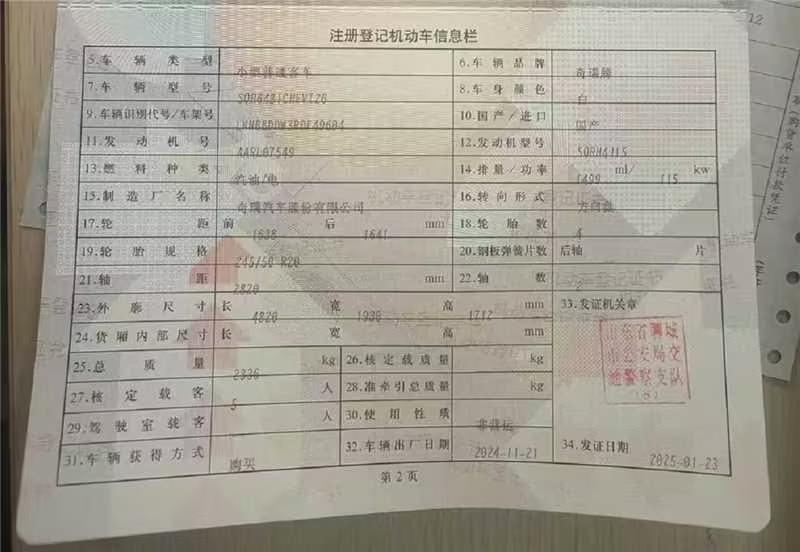 注册登记机动车信息栏
5.车辆类型 小型普通客车 6.车辆品牌 奇瑞牌
7.车辆型号 8.车身颜色 白
9.车辆识别代号/车架号 10.国产/进口 国产
11.发动机号 12.发动机型号
13.燃料种类 汽油/电 14.排量/功率 1499 ml/ 115 kw
15.制造厂名称 奇瑞汽车股份有限公司 16.转向形式 方向盘
17.轮距 前 1638 后 1641 mm 18.轮胎数 4
19.轮胎规格 245/50 R20 20.钢板弹簧片数 后轴 片
21.轴距 2820 mm 22.轴数 2
23.外廓尺寸 长 4820 宽 1930 高 1712 mm 33.发证机关章
24.货厢内部尺寸 长 宽 高 mm
25.总质量 2336 kg 26.核定载质量 kg
27.核定载客 5 人 28.准牵引总质量 kg
29.驾驶室载客 人 30.使用性质 非营运
31.车辆获得方式 购买 32.车辆出厂日期 2024-11-21 34.发证日期 2025-01-23
山东省聊城
市公安局交
通警察支队
第2页